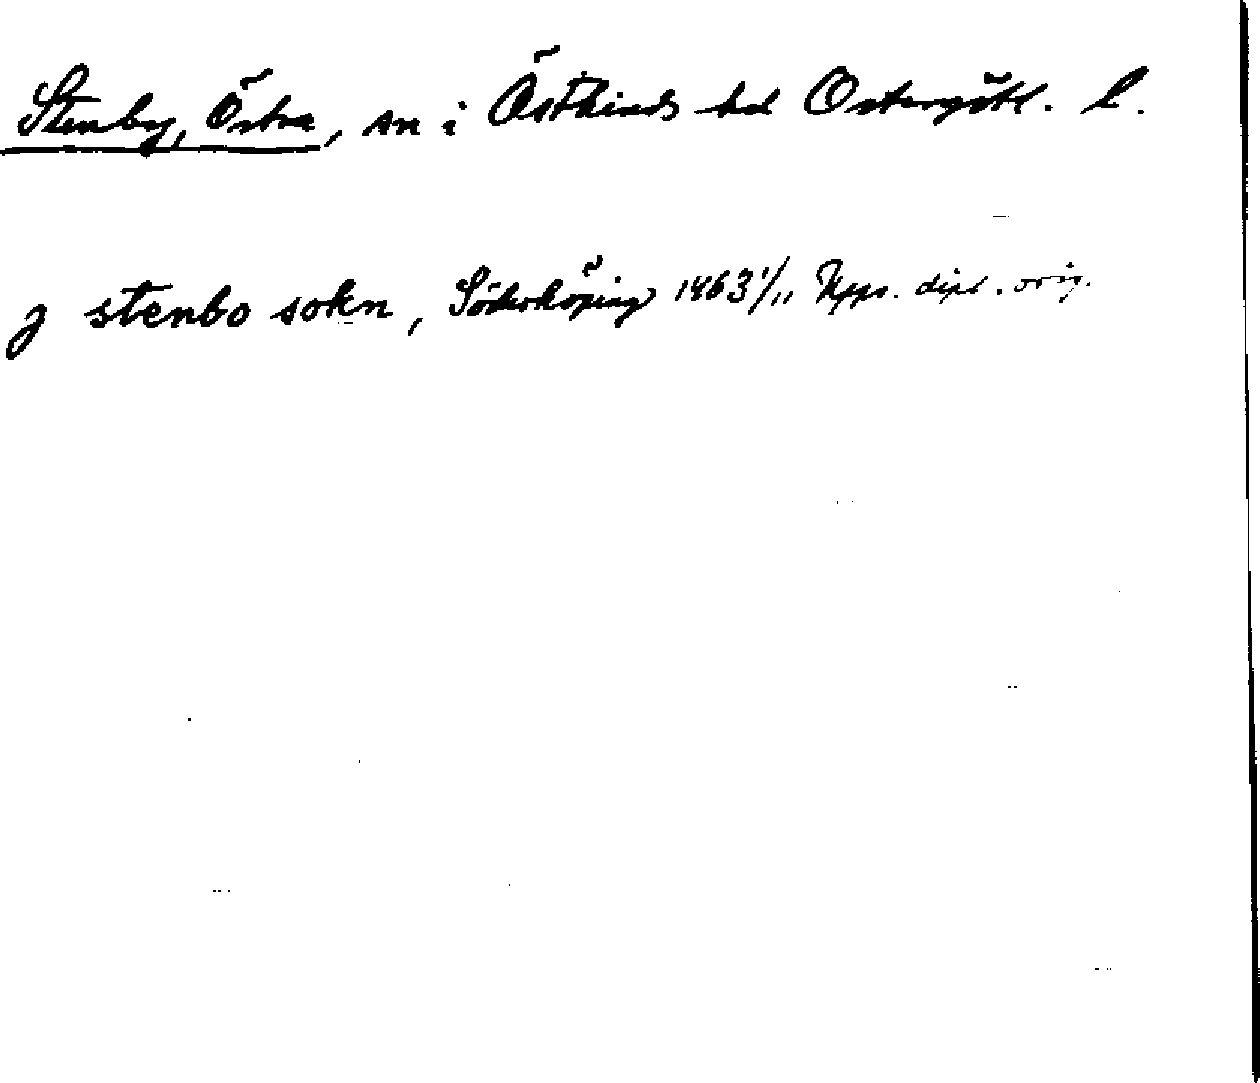 Stenby, Östra, sn i Östkinds hd Östergötl. l.
j stenbo sokn, Söderköping 1463 1/11 Upps. dipl. orig.